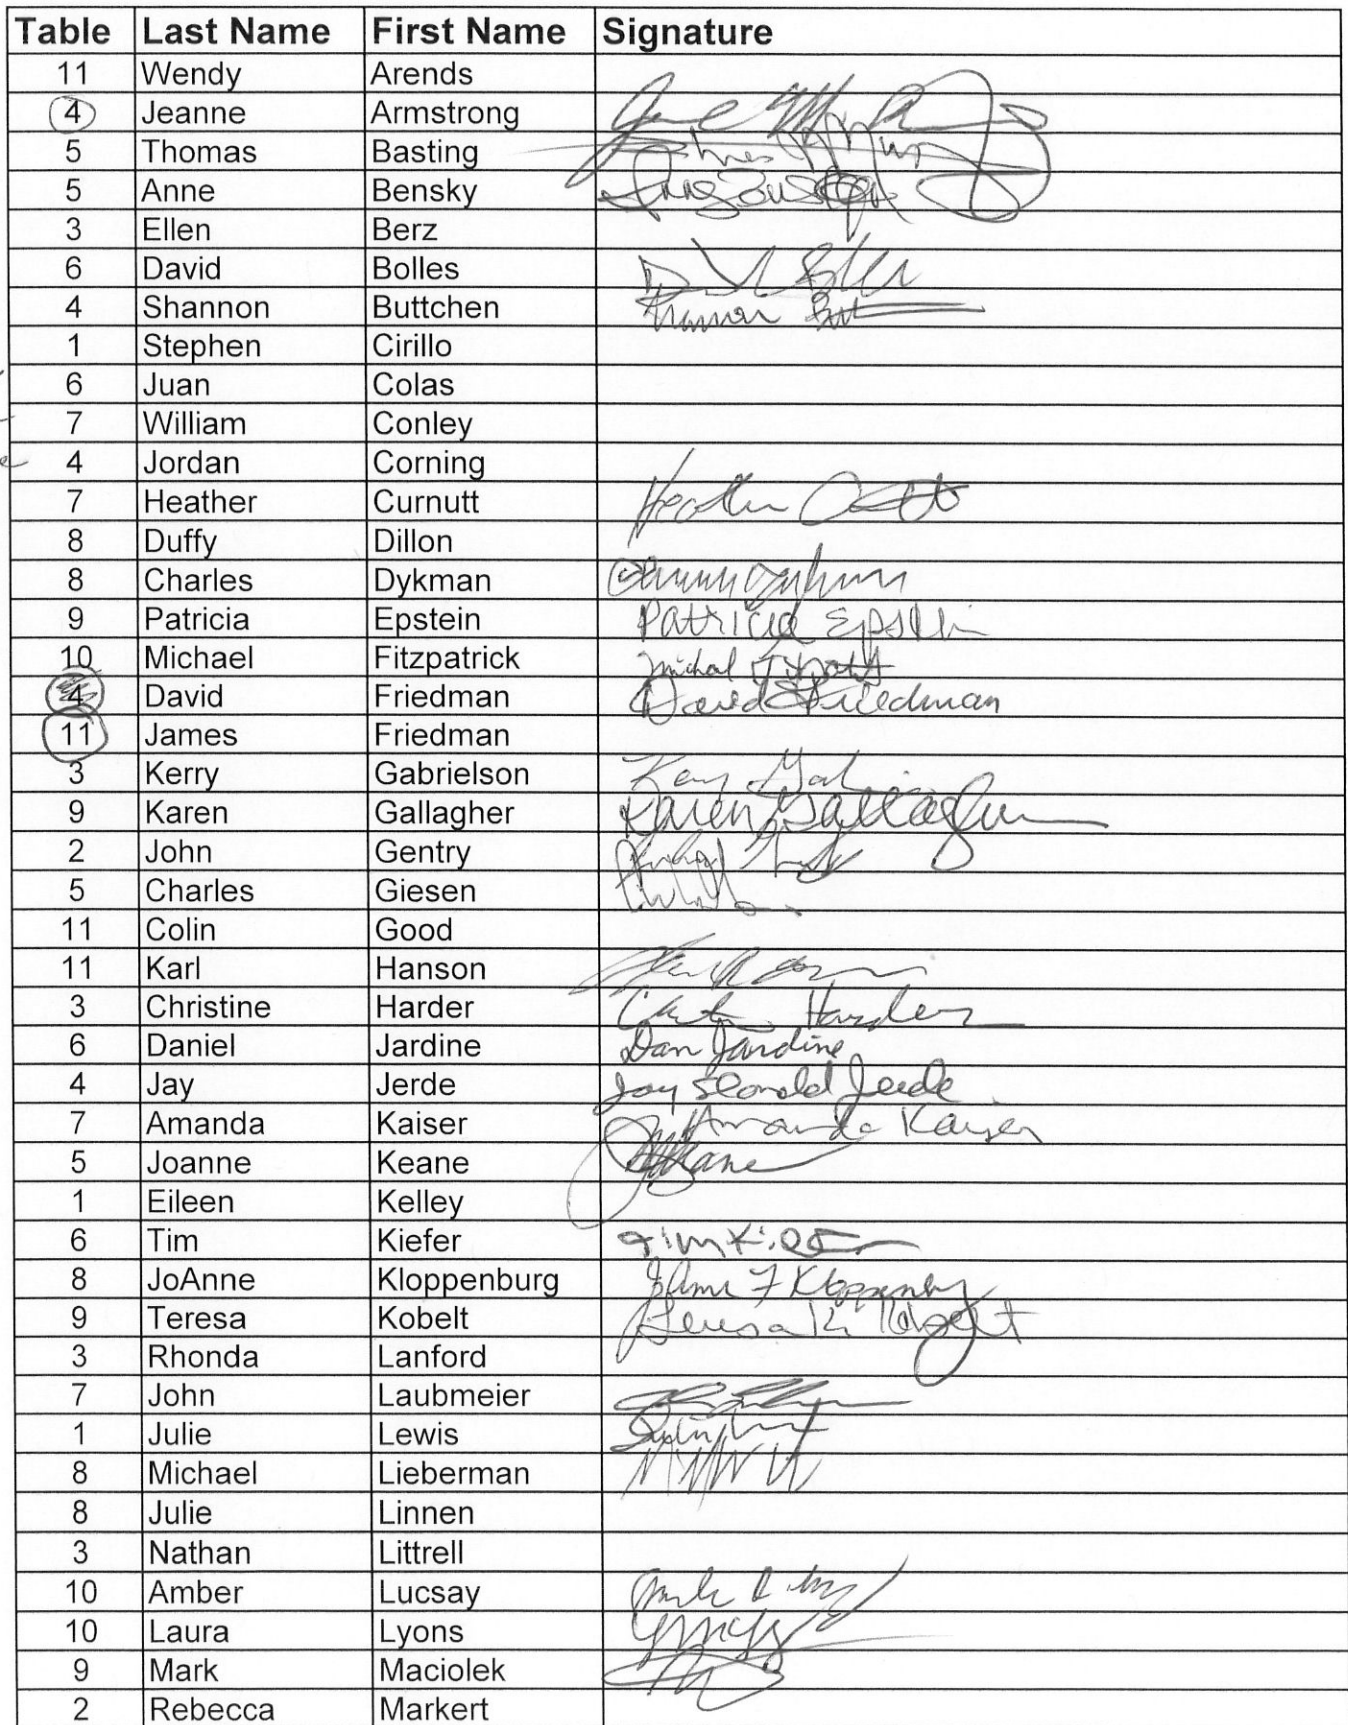 Table Last Name First Name Signature
11 Wendy Arends
4 Jeanne Armstrong
5 Thomas Basting
5 Anne Bensky
3 Ellen Berz
6 David Bolles
4 Shannon Buttchen
1 Stephen Cirillo
6 Juan Colas
7 William Conley
4 Jordan Corning
7 Heather Curnutt Heather
8 Duffy Dillon
8 Charles Dykman
9 Patricia Epstein Patricia Epstein
10 Michael Fitzpatrick
4 David Friedman David Friedman
11 James Friedman
3 Kerry Gabrielson
9 Karen Gallagher Karen Gallagher
2 John Gentry
5 Charles Giesen
11 Colin Good
11 Karl Hanson
3 Christine Harder Harder
6 Daniel Jardine Dan Jardine
4 Jay Jerde Jay Jerde
7 Amanda Kaiser Amanda Kaiser
5 Joanne Keane
1 Eileen Kelley
6 Tim Kiefer Tim Kiefer
8 JoAnne Kloppenburg F Kloppenburg
9 Teresa Kobelt Teresa K. Kobelt
3 Rhonda Lanford
7 John Laubmeier
1 Julie Lewis
8 Michael Lieberman
8 Julie Linnen
3 Nathan Littrell
10 Amber Lucsay
10 Laura Lyons
9 Mark Maciolek
2 Rebecca Markert